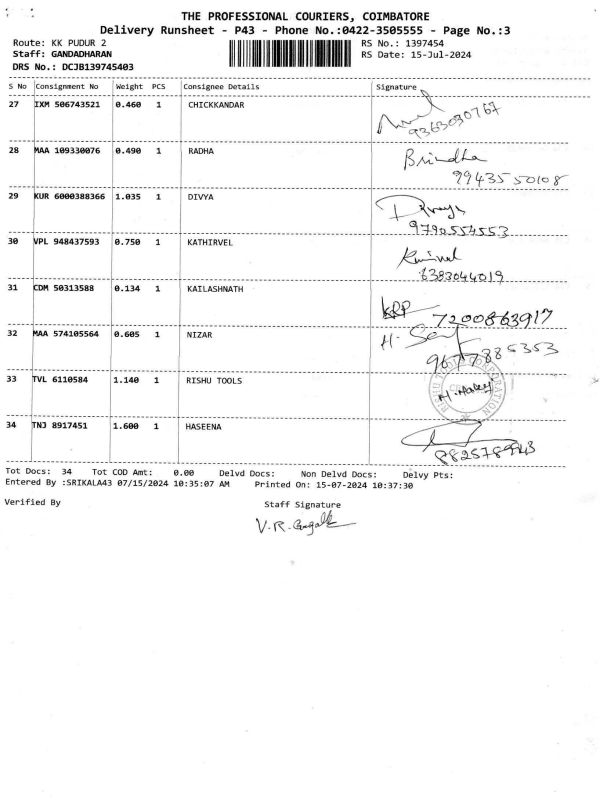 THE PROFESSIONAL COURIERS, COIMBATORE
Delivery Runsheet - P43 - Phone No.:0422-3505555 - Page No.:3
Route: KK PUDUR 2 RS No.: 1397454
Staff: GANDADHARAN RS Date: 15-Jul-2024
DRS No.: DCJB139745403
S No Consignment No Weight PCS Consignee Details Signature
27 IXM 506743521 0.460 1 CHICKKANDAR
9363030767
28 MAA 109330076 0.490 1 RADHA Brindha
99435 50108
29 KUR 6000388366 1.035 1 DIVYA Divya
9790554553
30 VPL 948437593 0.750 1 KATHIRVEL
6383044019
31 CDM 50313588 0.134 1 KAILASHNATH KRP
7200863917
32 MAA 574105564 0.605 1 NIZAR
33 TVL 6110584 1.140 1 RISHU TOOLS
34 TNJ 8917451 1.600 1 HASEENA
Tot Docs: 34 Tot COD Amt: 0.00 Delvd Docs: Non Delvd Docs: Delvy Pts:
Entered By :SRIKALA43 07/15/2024 10:35:07 AM Printed On: 15-07-2024 10:37:30
Verified By Staff Signature
V.R.